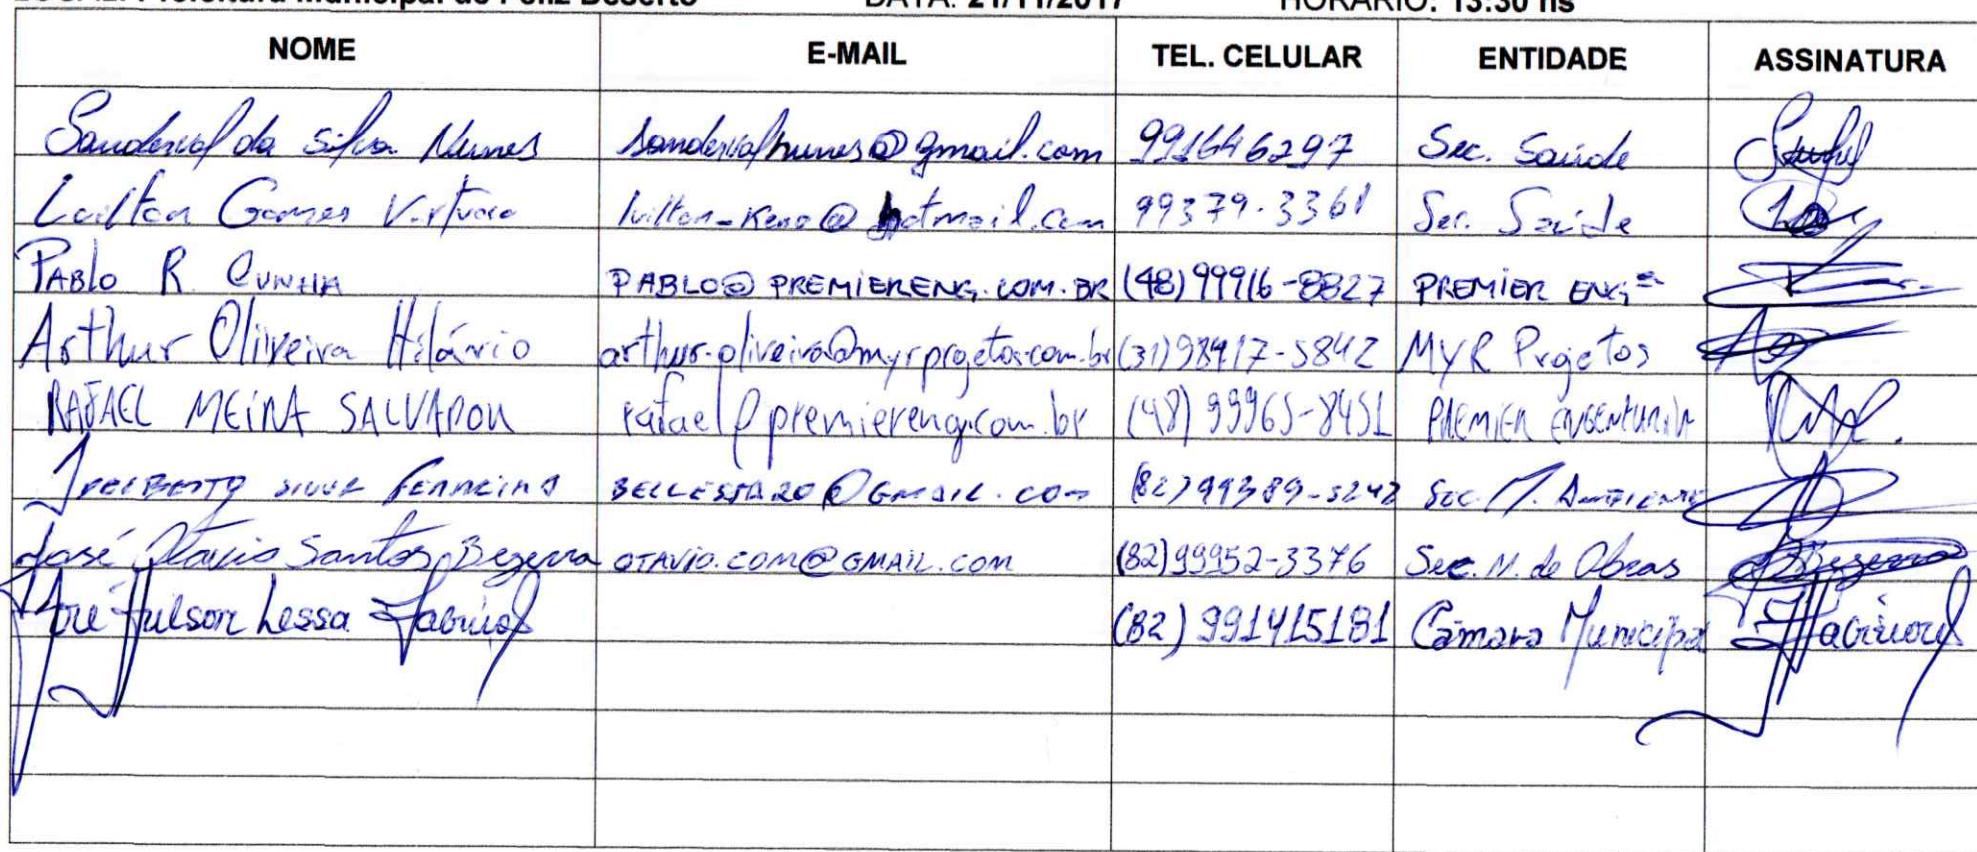 LOCAL: Prefeitura Municipal de Feliz Deserto DATA: 21/11/2017 HORÁRIO: 13:30 hs
NOME E-MAIL TEL. CELULAR ENTIDADE ASSINATURA
Sanderval da Silva Nunes sandervalnunes@gmail.com 991646297 Sec. Saúde
Luilton Gomes Virtuoso luilton_keno@hotmail.com 99379-3361 Sec. Saúde
PABLO R. CUNHA PABLO@PREMIERENG.COM.BR (48)99916-8827 PREMIER ENGª
Arthur Oliveira Hilário arthur.oliveira@myrprojetos.com.br (31)98417-5842 MYR Projetos
RAFAEL MEIRA SALVADOR rafael@premiereng.com.br (48) 99965-8451 PREMIER ENGENHARIA
SILVA FERREIRA (82)99389-5242 Sec. M. AMBIENTE
José Otavio Santos Bezerra OTAVIO.COM@GMAIL.COM (82)99952-3376 Sec. M. de Obras Bezerra
José Lessa (82) 991415181 Câmara Municipal